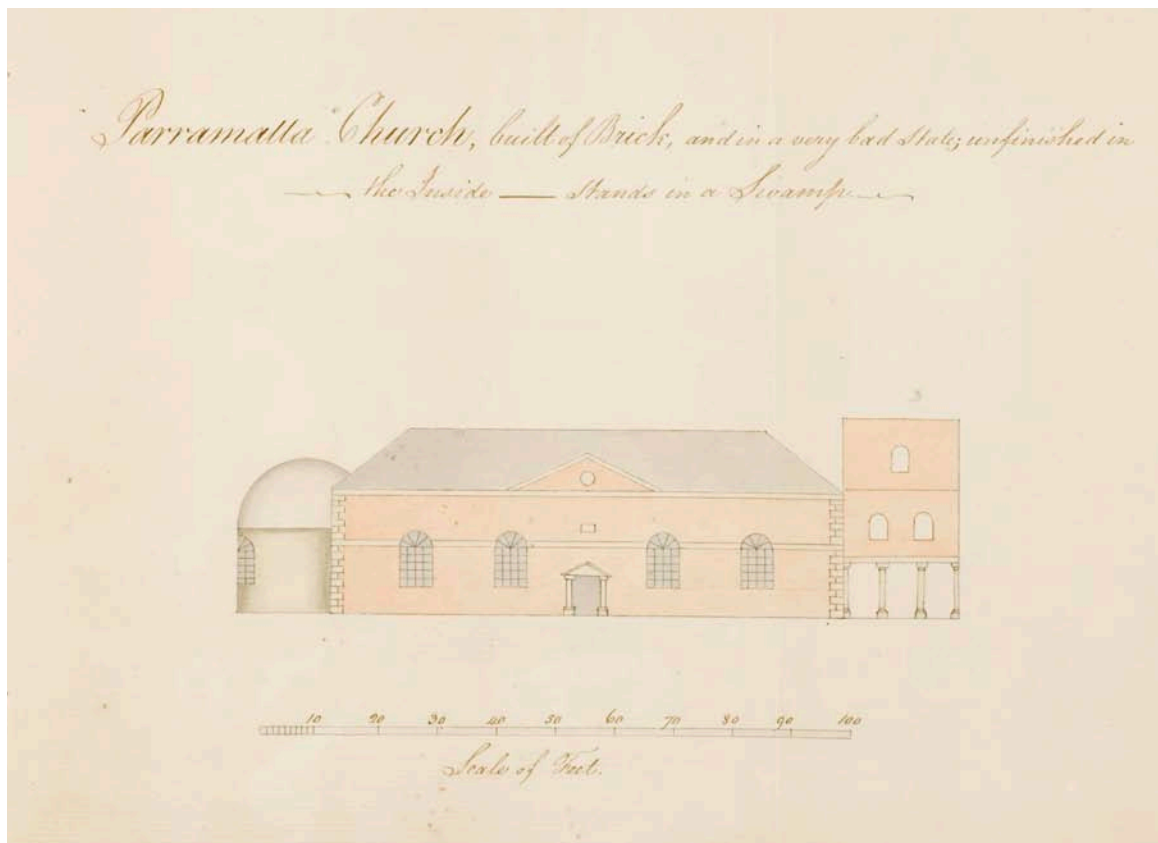 Parramatta Church, built of Brick, and in a very bad State; unfinished in
the Inside — Stands in a Swamp
10 20 30 40 50 60 70 80 90 100
Scale of Feet.